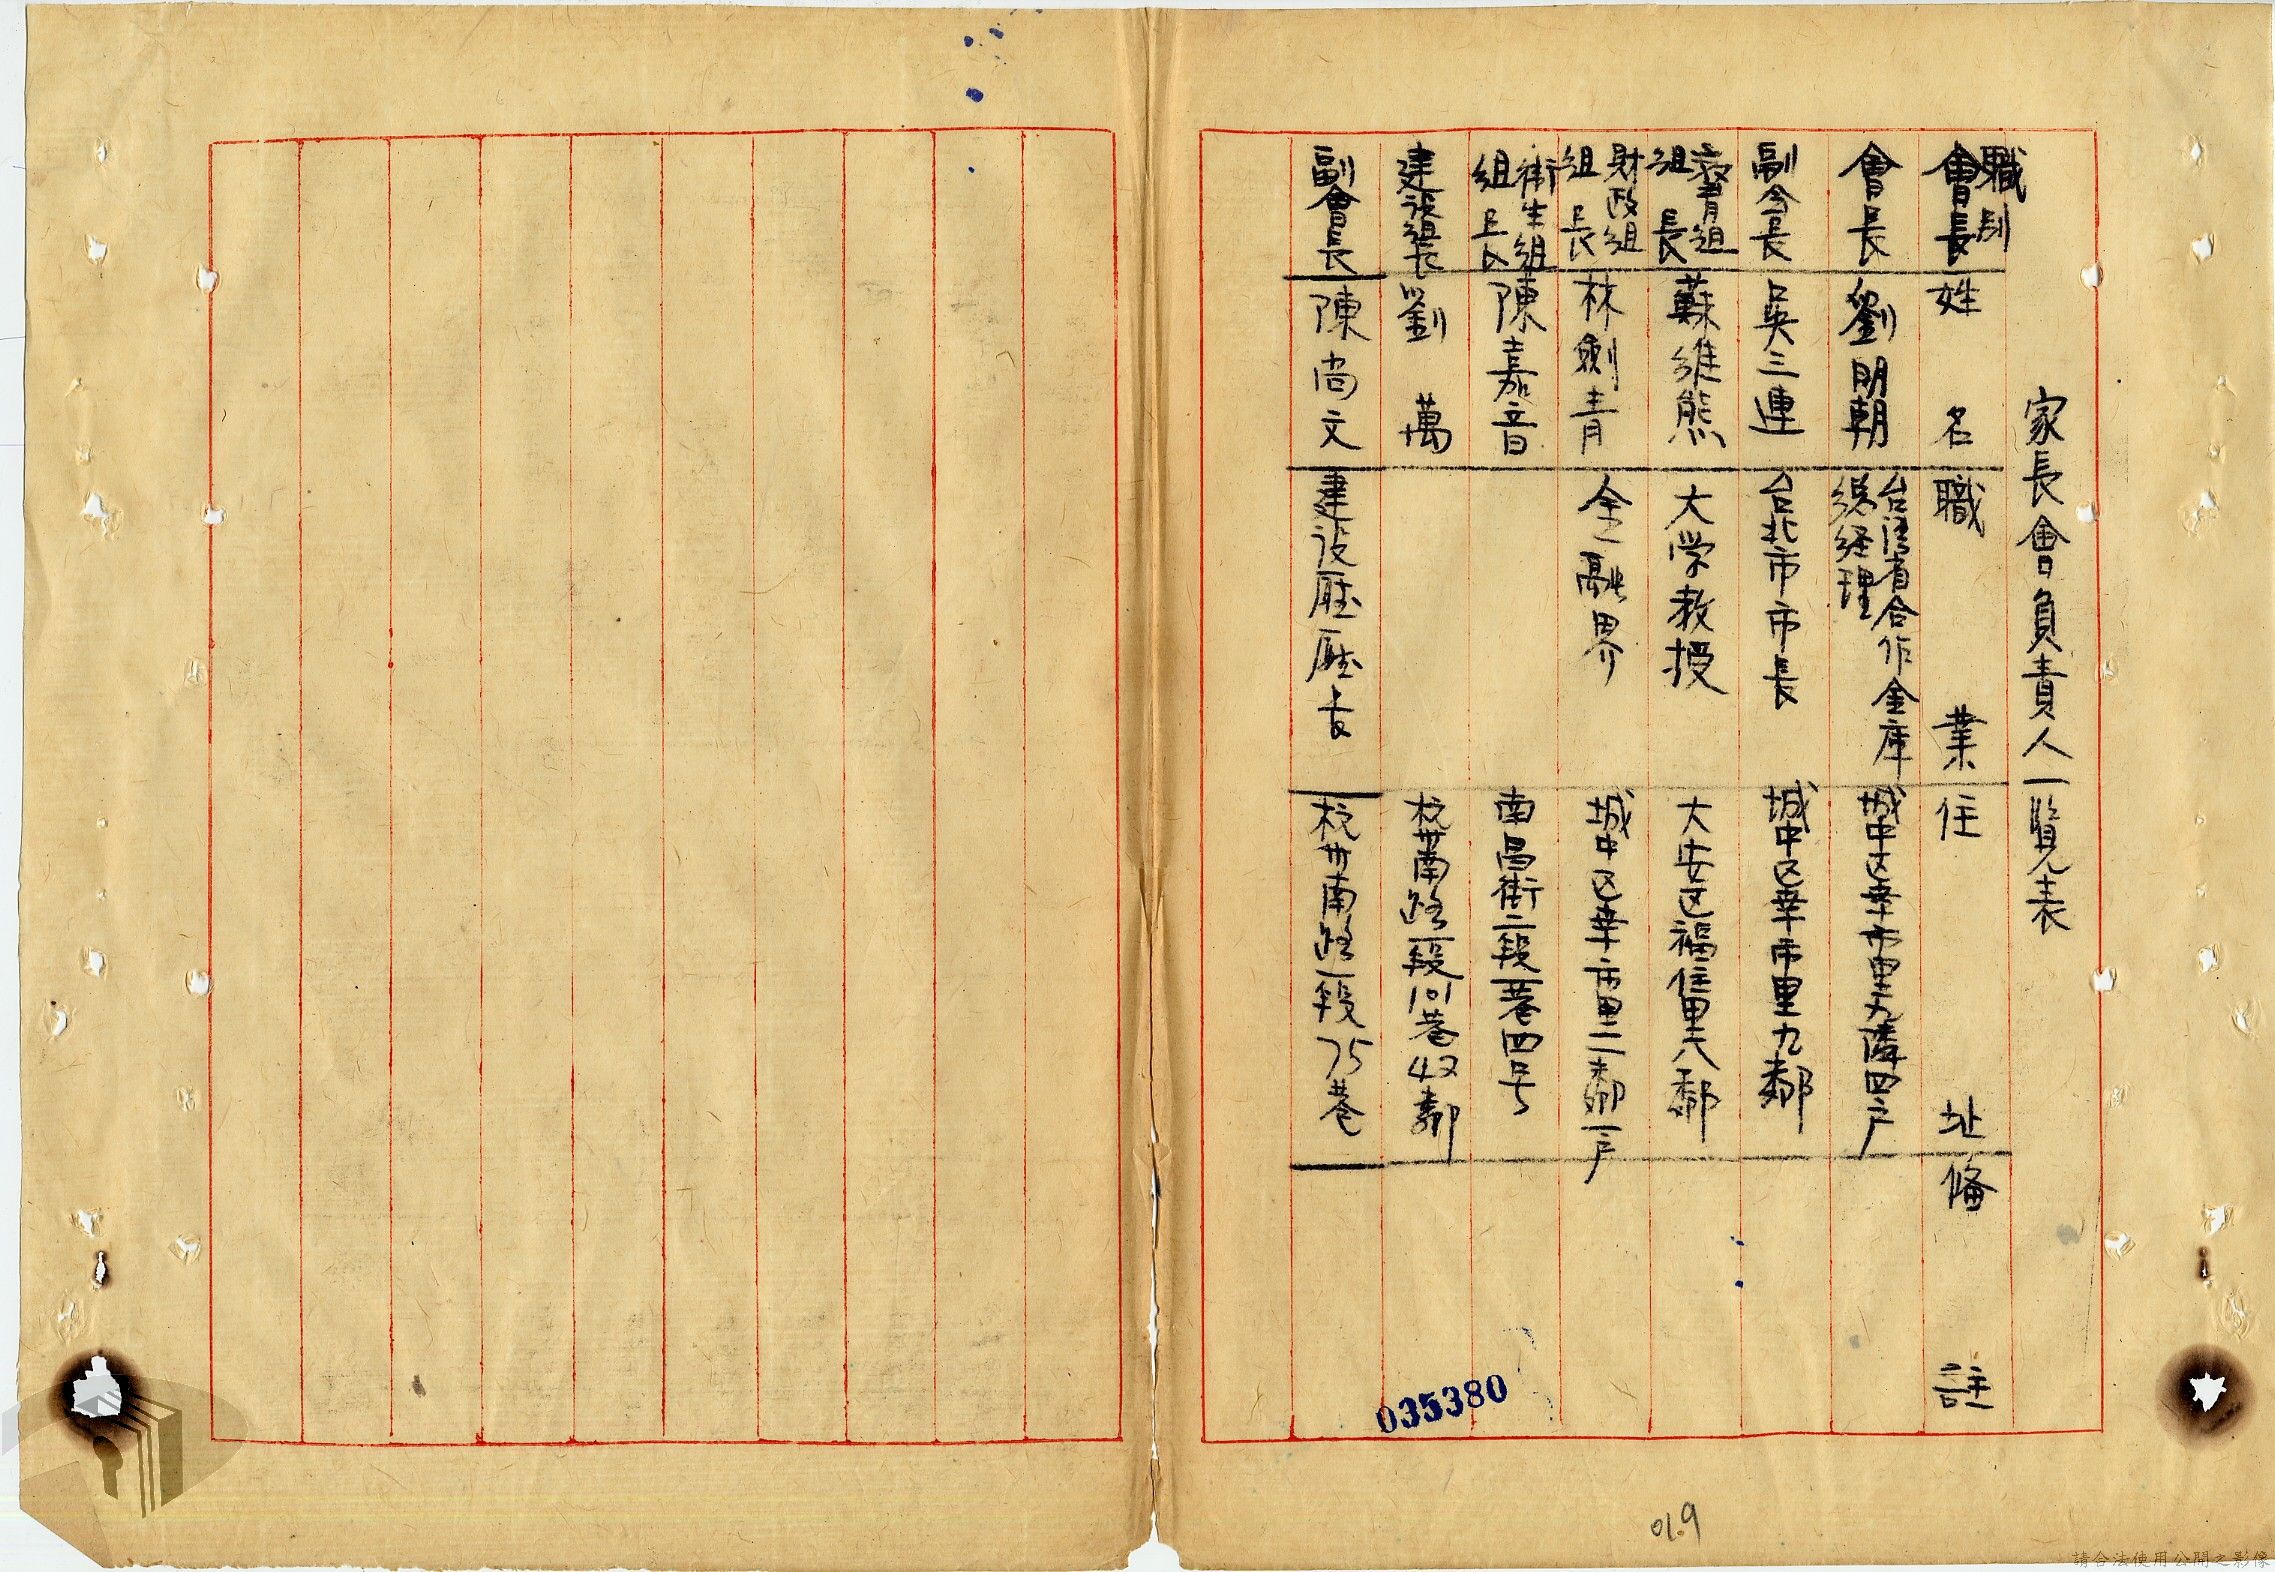 家長會負責人一覽表
職別 姓名 職業 住址 備註
會長
會長 劉明朝 台湾省合作金庫 総経理 城中区幸市里九隣四戶
副会長 吳三連 台北市市長 城中区幸市里九鄰
教育組組長 蘇維熊 大学教授 大安区福住里六鄰
財政組組長 林劍青 金融界 城中区幸市里二鄰一戶
衛生組組長 陳嘉音 南昌街二段一巷四号
建設組長 劉萬 杭州南路一段101巷42鄰
副會長 陳尚文 建設廳廳長 杭州南路一段75巷
035380
019
請合法使用公開之影像